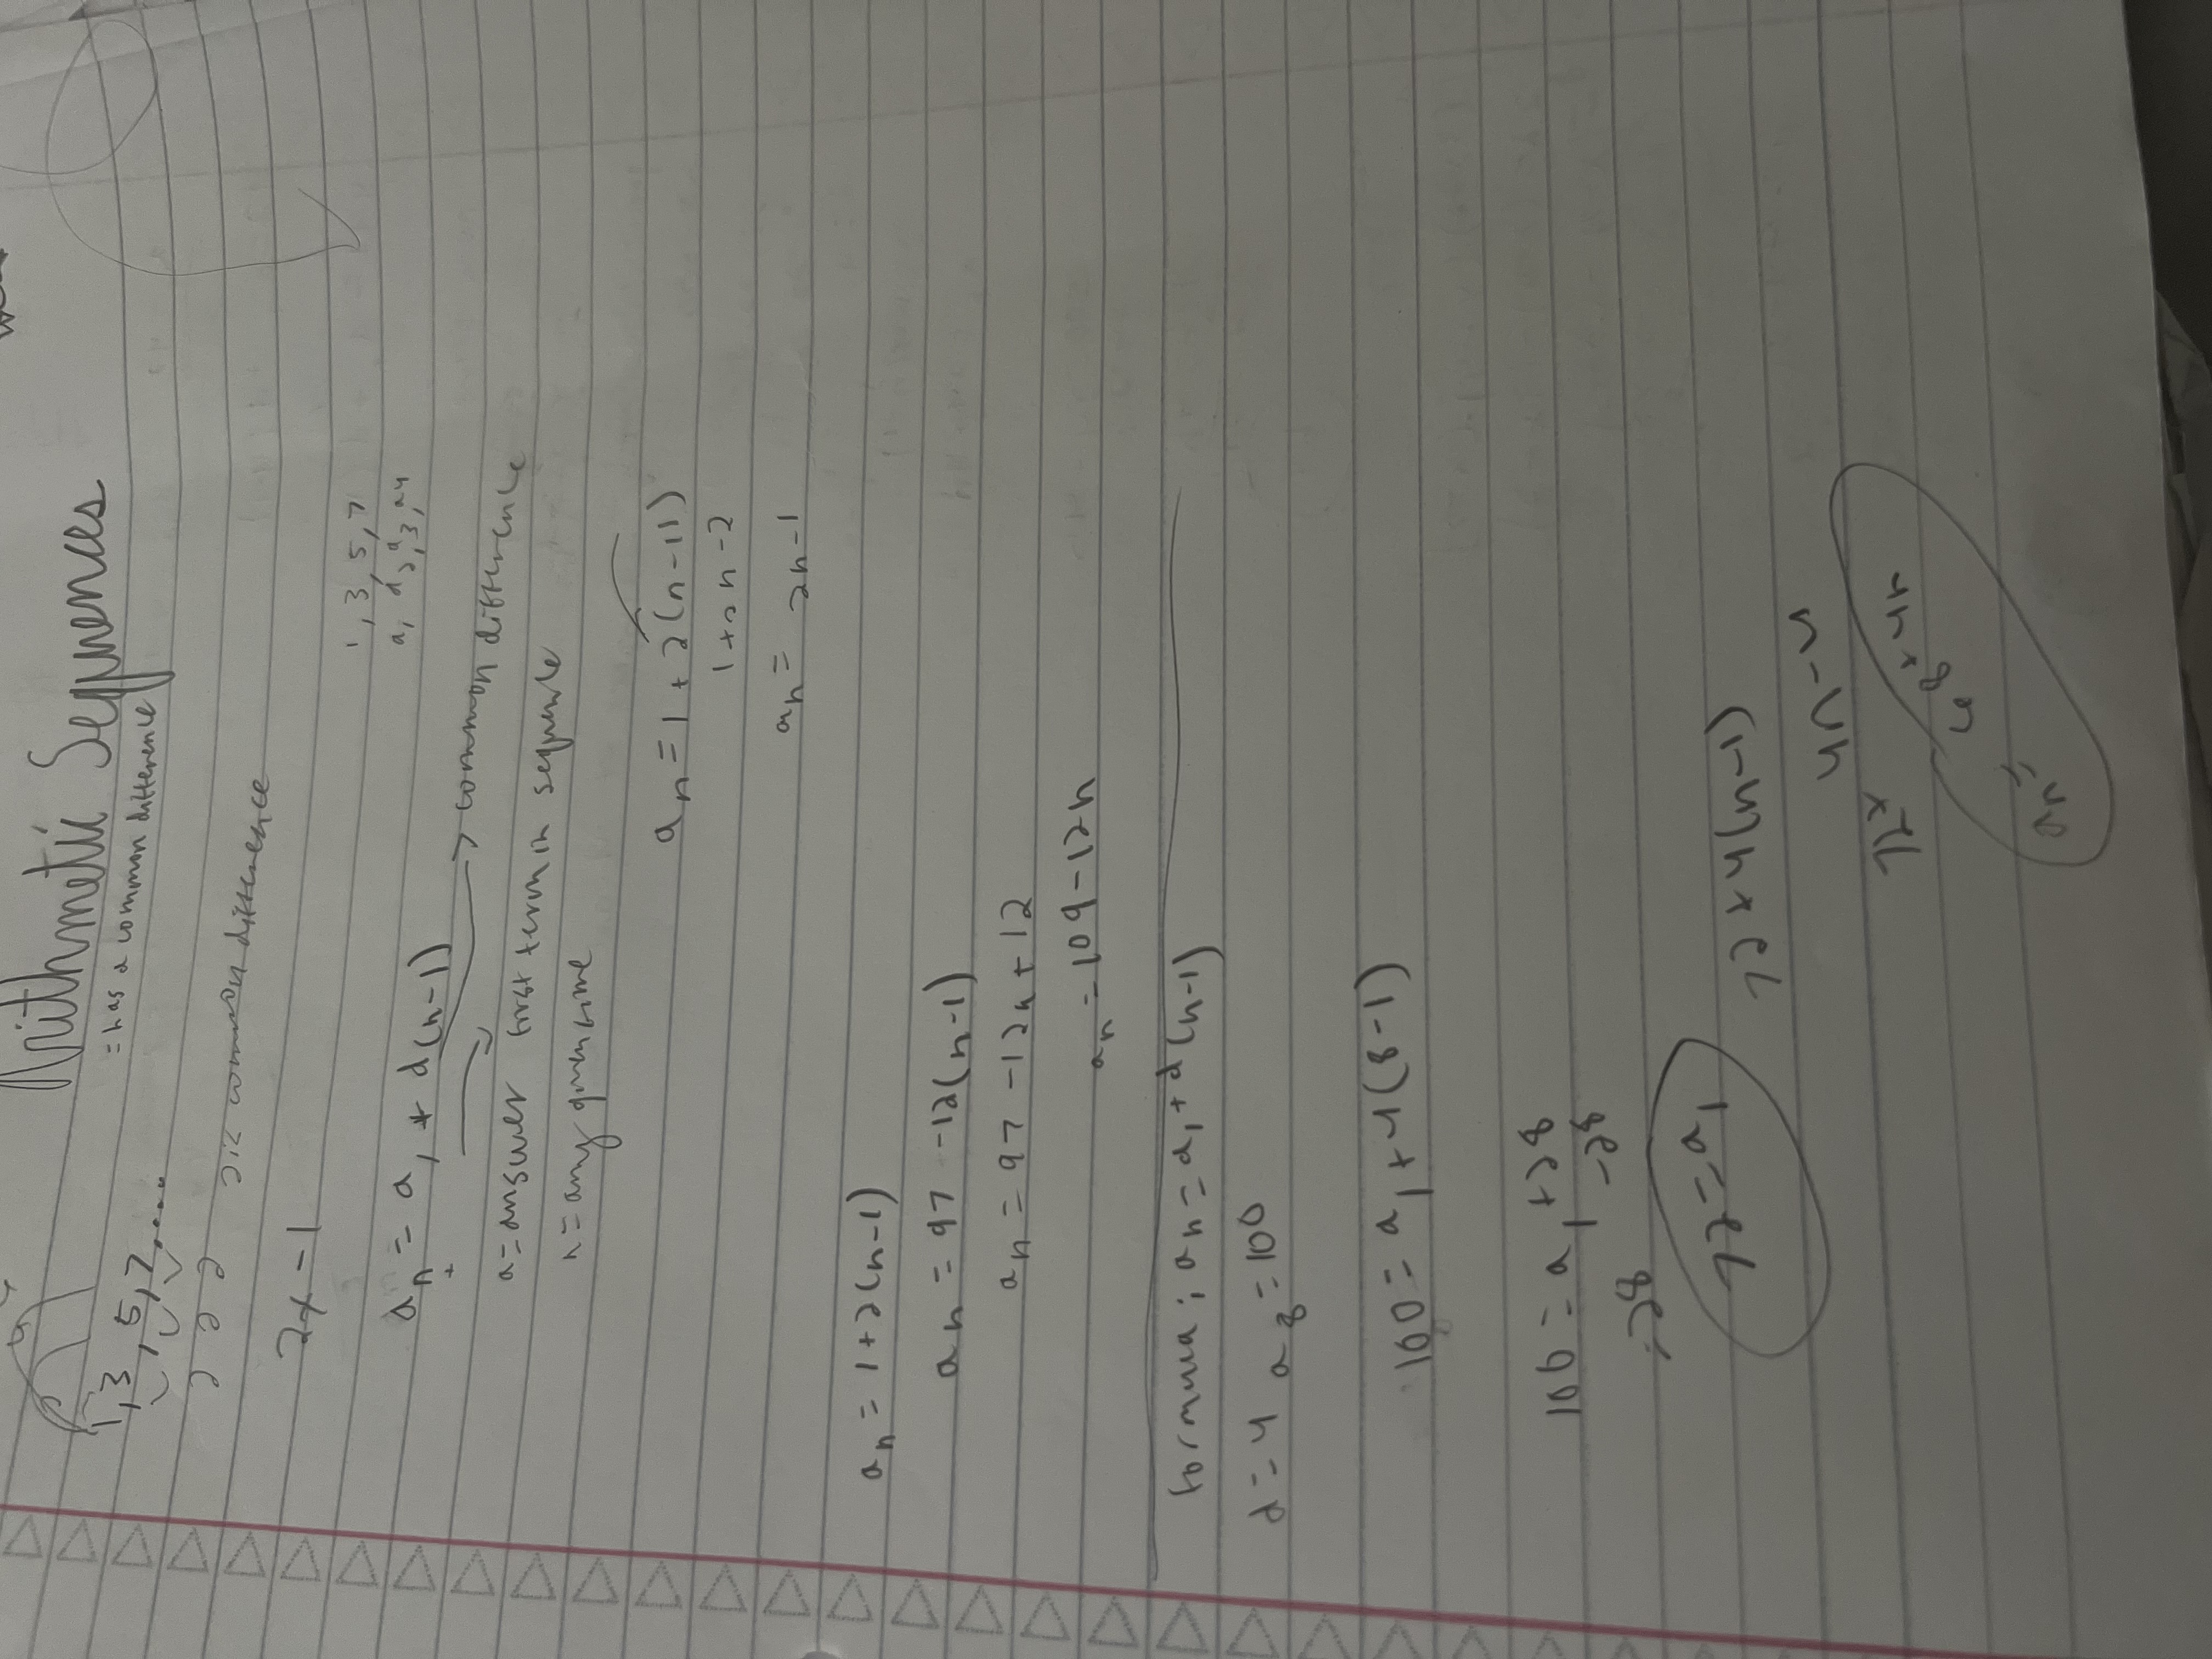 Arithmetic Sequences
= has a common difference
1, 3, 5, 7, ....
2 2 2
2 is common difference
2x - 1
1, 3, 5, 7
a1 a2, a3, a4
an = a1 + d(n-1) → common difference
a = answer first term in sequence
n = any given time
an = 1 + 2(n-1)
1+2n-2
an = 2n-1
an = 1+2(n-1)
an = 97 -12(n-1)
an = 97 -12n + 12
an = 109-12n
formula: an = a1 + d(n-1)
d = 4 a8 = 100
100 = a1 + 4(8-1)
100 = a1 + 28
-28 -28
72 = a1
72 + 4(n-1)
4n-4
72+
an = 68 + 4n